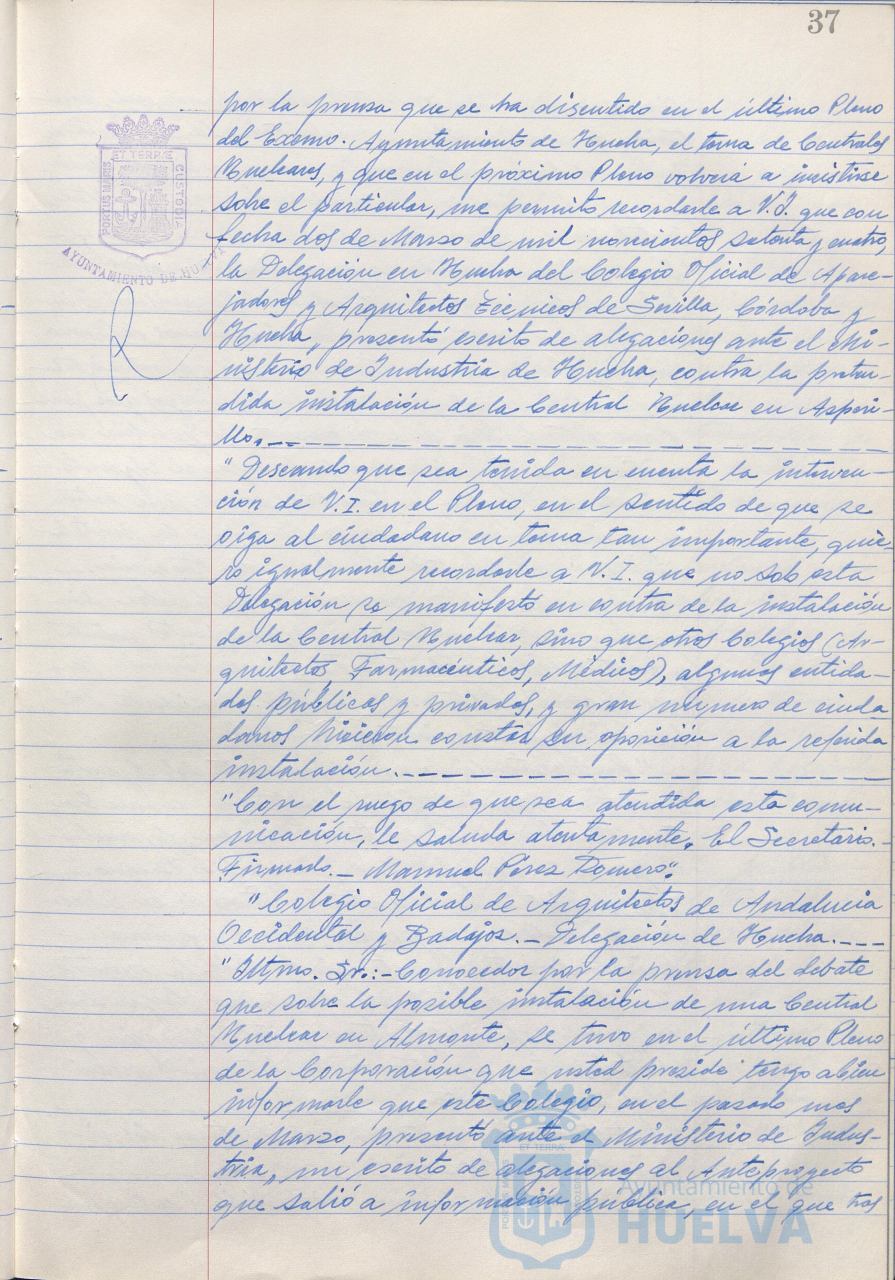 37
PORTUS MARIS ET TERRÆ CUSTODIA
AYUNTAMIENTO DE HUELVA
por la prensa que se ha discutido en el último Pleno
del Excmo. Ayuntamiento de Huelva, el tema de Centrales
Nucleares, y que en el próximo Pleno volverá a insistirse
sobre el particular, me permito recordarle a V.I. que con
fecha dos de Marzo de mil novecientos setenta y cuatro,
la Delegación en Huelva del Colegio Oficial de Apare-
jadores y Arquitectos Técnicos de Sevilla, Córdoba y
Huelva, presentó escrito de alegaciones ante el Mi-
nisterio de Industria de Huelva, contra la preten-
dida instalación de la Central Nuclear en Asperi-
llo.
"Deseando que sea tenida en cuenta la interven-
ción de V.I. en el Pleno, en el sentido de que se
oiga al ciudadano en tema tan importante, quie-
ro igualmente recordarle a V.I. que no solo esta
Delegación se manifestó en contra de la instalación
de la Central Nuclear, sino que otros Colegios (Ar-
quitectos, Farmacéuticos, Médicos), algunas entida-
des públicas y privadas, y gran número de ciuda-
danos hicieron constar su oposición a la referida
instalación.
"Con el ruego de que sea atendida esta comu-
nicación, le saluda atentamente. El Secretario.-
Firmado.- Manuel Pérez Romero".
"Colegio Oficial de Arquitectos de Andalucia
Occidental y Badajoz.- Delegación de Huelva.
"Iltmo. Sr.:- Conocedor por la prensa del debate
que sobre la posible instalación de una Central
Nuclear en Almonte, se tuvo en el último Pleno
de la Corporación que usted preside tengo a bien
informarle que este Colegio, en el pasado mes
de Marzo, presentó ante el Ministerio de Indus-
tria, un escrito de alegaciones al Anteproyecto
que salió a información pública, en el que tras
Ayuntamiento de
HUELVA